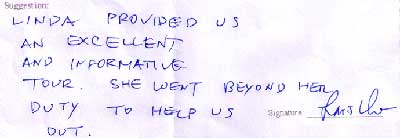 Suggestion:
LINDA PROVIDED US
AN EXCELLENT
AND INFORMATIVE
TOUR. SHE WENT BEYOND HER
DUTY TO HELP US
Signature
OUT.